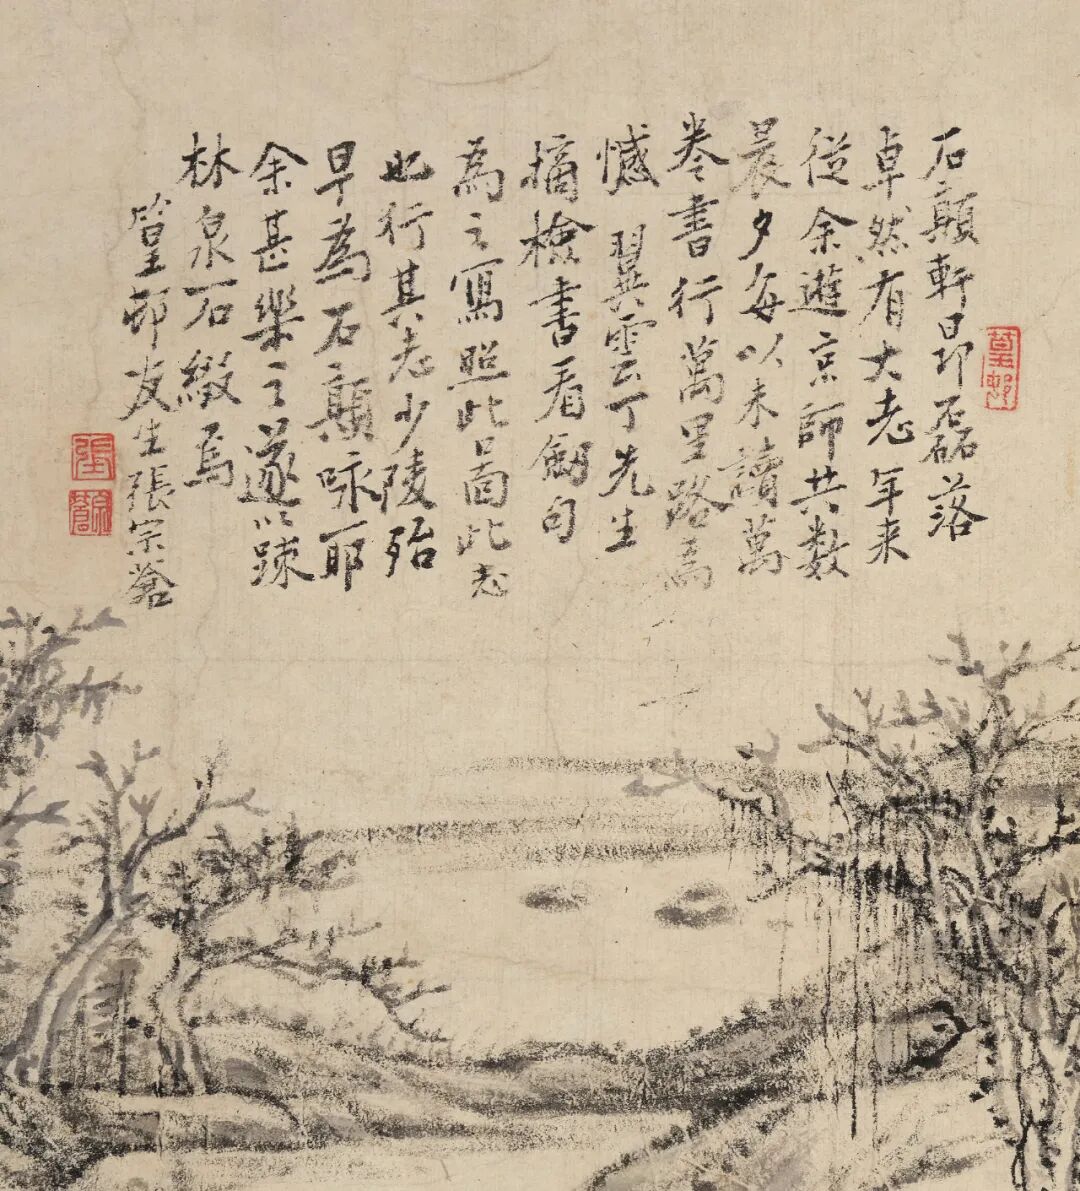 石顛軒昂磊落
卓然有大志年来
從余遊京師共数
晨夕每以未讀萬
卷書行萬里路為
憾翼雲丁先生
摘檢書看劒句
為之寫照此啚此志
也行其志少陵殆
早為石顛咏耶
余甚樂之遂以踈
林泉石綴焉
篁邨友生張宗蒼
篁邨
張
宗蒼